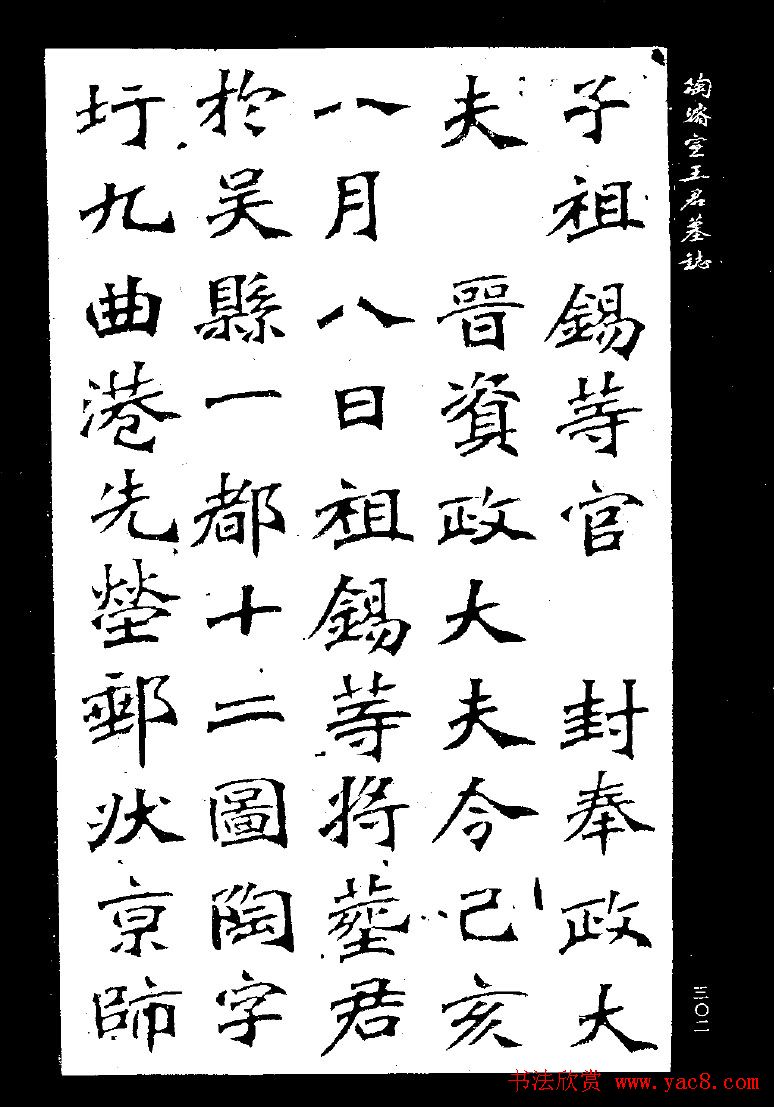 陶濬宣王君墓誌
子祖錫等官 封奉政大
夫 晉資政大夫今己亥
八月八日祖錫等將塟君
於吳縣一都十二圖陶字
圩九曲港先塋郵狀京師
三〇二
书法欣赏 www.yac8.com